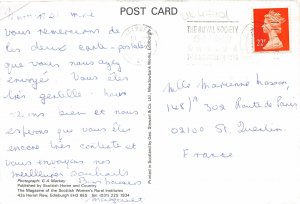 POST CARD
THE ROYAL SOCIETY
22P
vous remercions de
les deux carte-postale
que vous nous avez
envoyé Vous êtes
très gentille. nous
bien et nous
espérons que vous êtes
encore très contente et
vous envoyons nos
meilleures souhaits
Mlle Marianne
148/A 302 Route de Paris
02100 St. Quentin
France
Photograph: C A Mackay
Published by Scottish Home and Country
The Magazine of the Scottish Women's Rural Institutes
42a Heriot Row, Edinburgh EH3 6ES Tel: (031) 225 1934
Printed in Scotland by Geo. Stewart & Co. Ltd., Meadowbank Works, Edinburgh